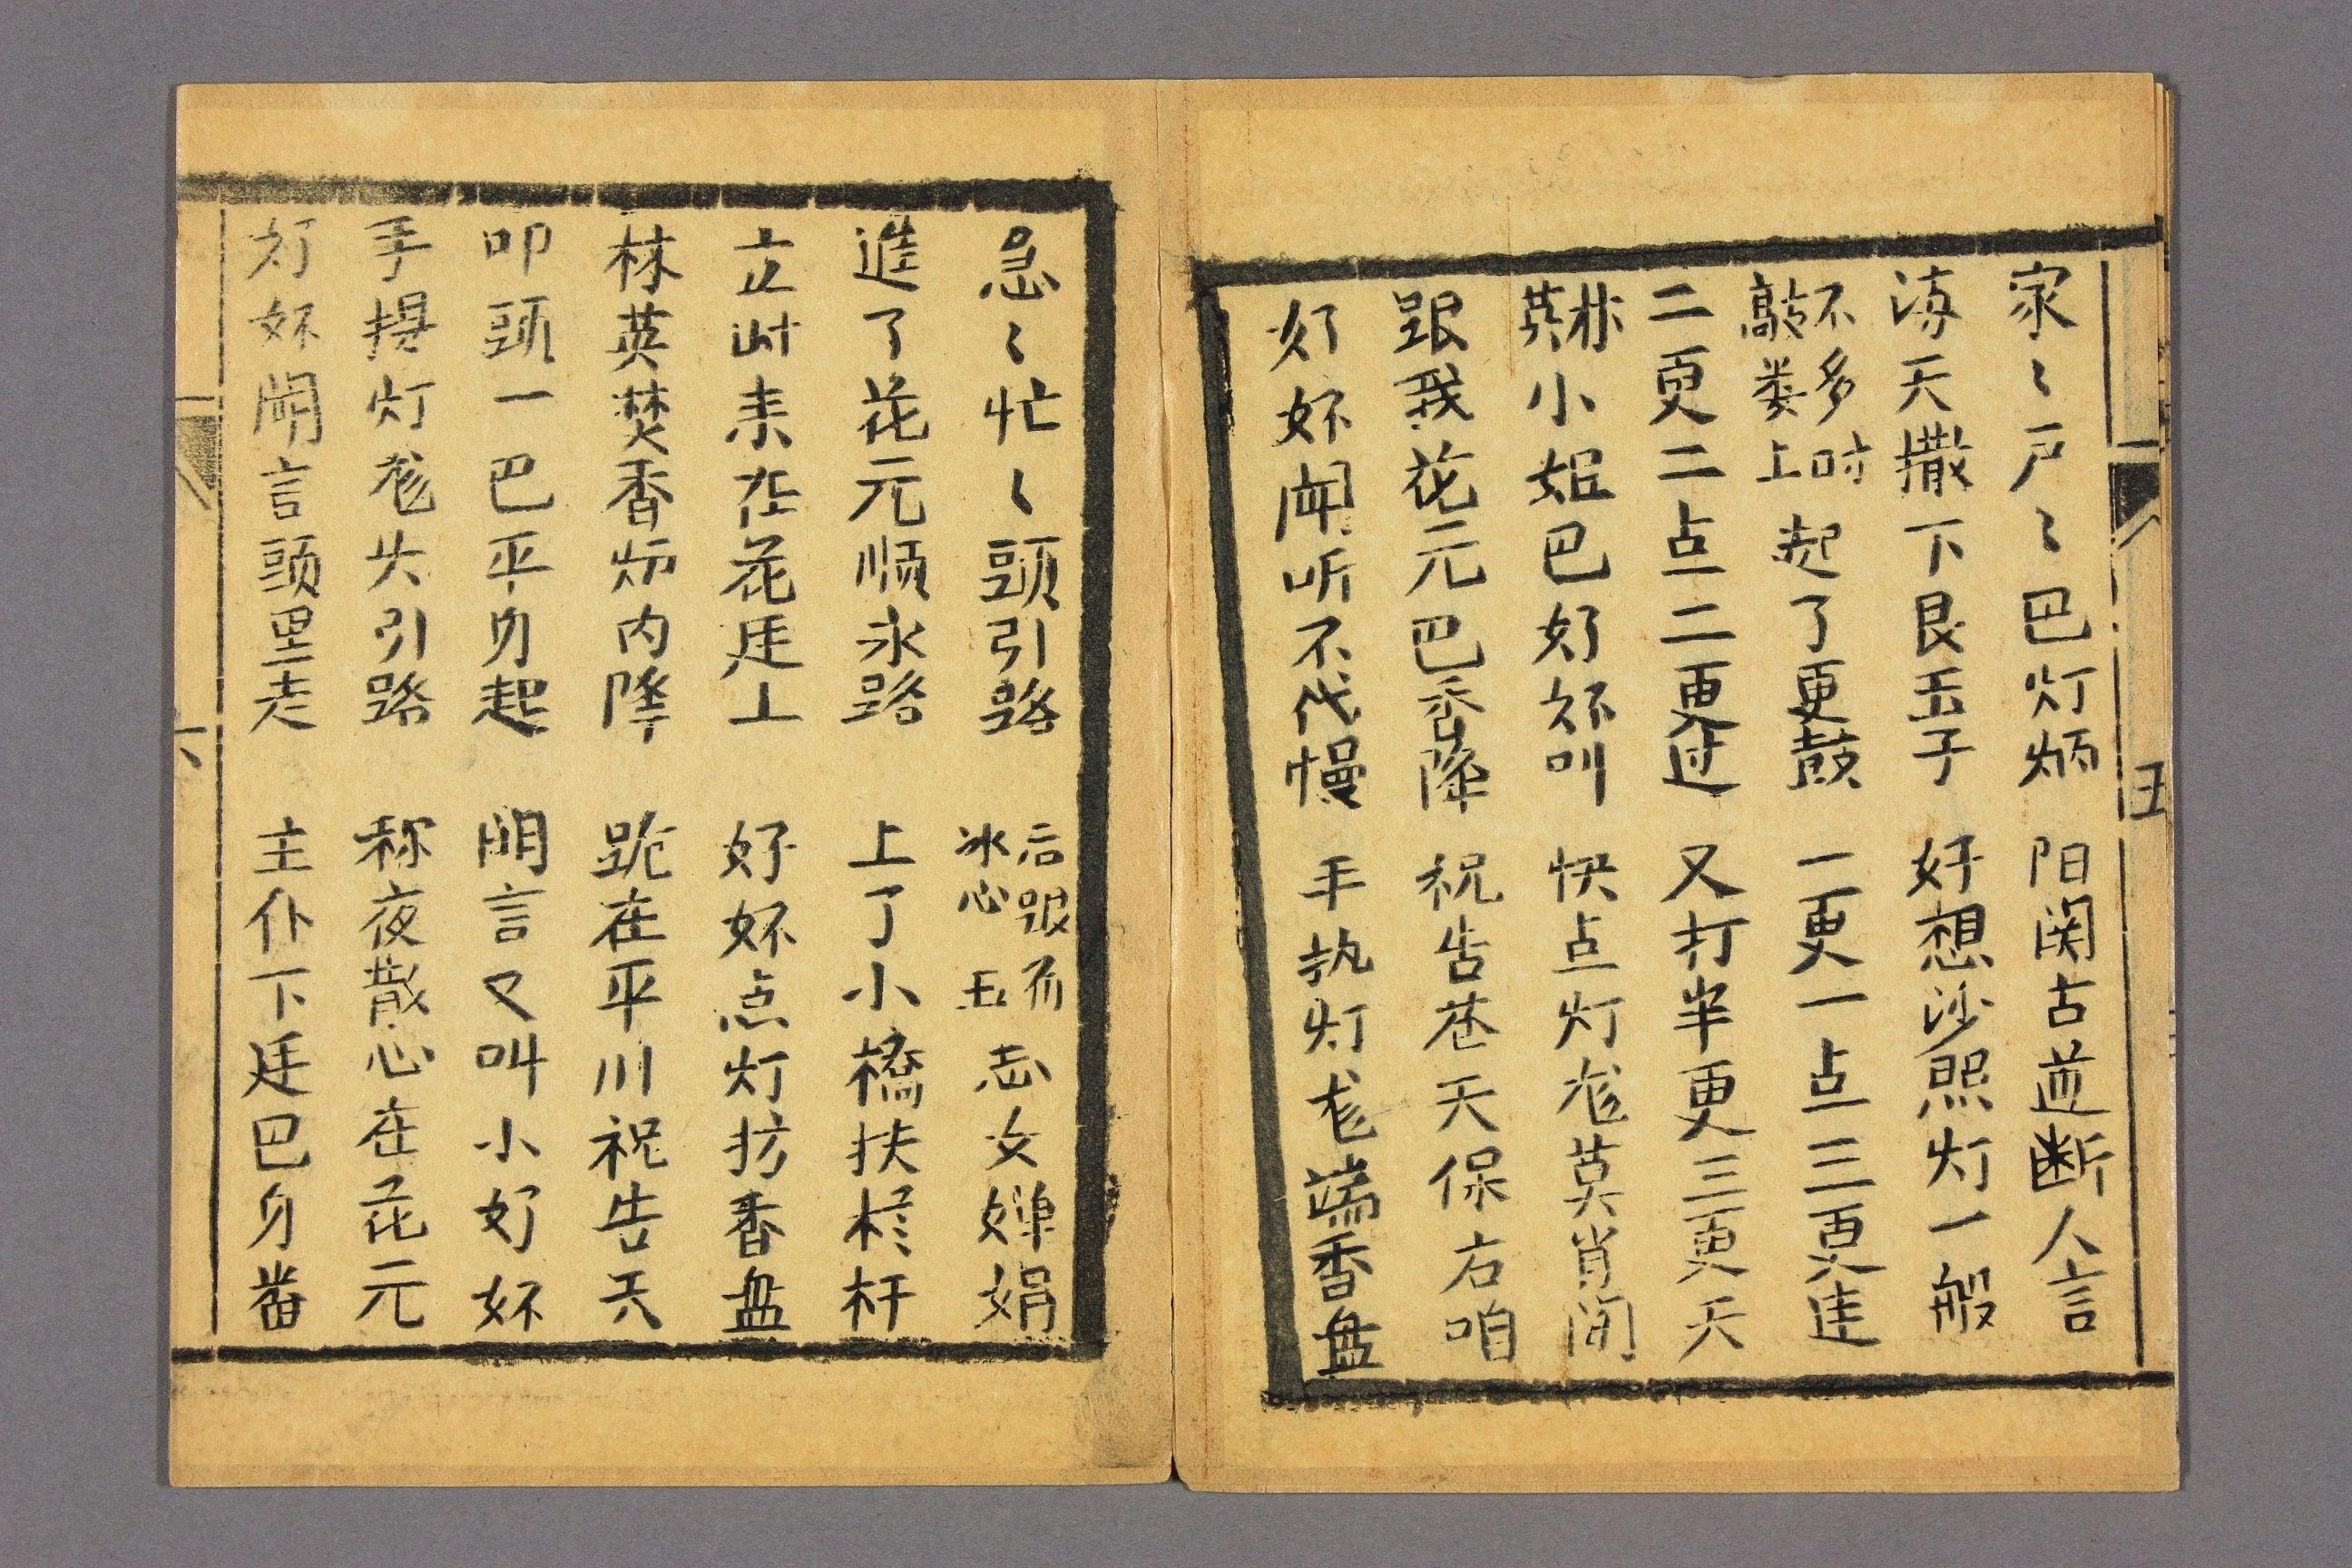 家〻户〻巴灯炳 阳関古道断人言
海天撒下艮玉子 好想沙照灯一般
不多时敲娄上起了更鼓 一更一点三更進
二更二点二更过 又打半更三更天
林英小姐巴好妚叫 快点灯莫肖闲
跟我花元巴香降 祝告苍天保右咱
好妚闻听不代慢 手执灯端香盘
急〻忙〻頭引路 后跟冰心玉志女婵娟
進了花元順永路 上了小橋扶栏杆
立时来在花廷上 好妚点灯扐香盘
林英焚香炉内降 跪在平川祝告天
叩頭一巴平身起 開言又叫小好妚
手提灯头引路 称夜散心在花元
好妚開言頭里走 主仆下廷巴身番
五
六